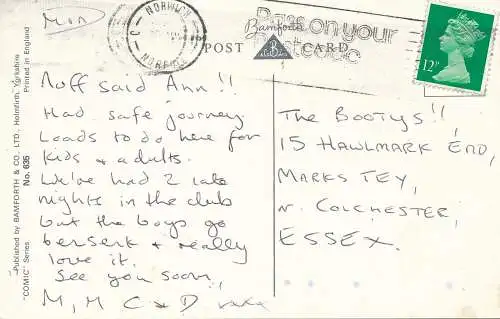 MAD
NORWICH
NORFOLK
Pass on your
postcode
Bamforth
POST CARD
12P
Nuff said Ann!!
Had safe journey
Loads to do here for
kids & adults.
We've had 2 late
nights in the club
but the boys go
berserk & really
love it.
See you soon,
M, M C & D xxxx
The Bootys!!
15 HAWLMARK END,
MARKS TEY,
N. COLCHESTER,
ESSEX.
Published by BAMFORTH & CO. LTD., Holmfirth, Yorkshire
Printed in England
"COMIC" Series
No. 635